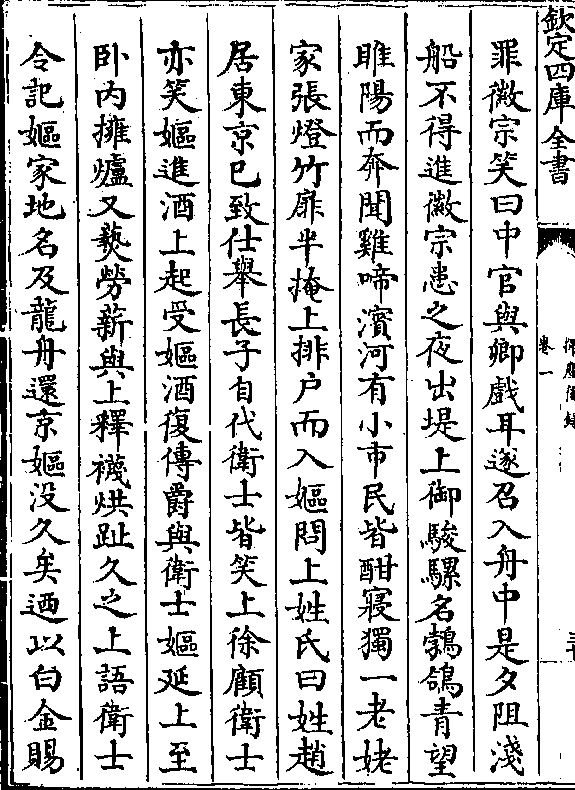 欽定四庫全書
卷一
罪徽宗笑曰中官與卿戲耳遂召入舟中是夕阻淺
船不得進徽宗患之夜出堤上御駿騾名鵓鴿青望
睢陽而奔聞雞啼濱河有小市民皆酣寢獨一老姥
家張燈竹扉半掩上排戶而入嫗問上姓氏曰姓趙
居東京已致仕舉長子自代衛士皆笑上徐顧衛士
亦笑嫗進酒上起受嫗酒復傳爵與衛士嫗延上至
卧内擁爐又爇勞薪與上釋襪烘趾久之上語衛士
令記嫗家地名及龍舟還京嫗没久矣迺以白金賜